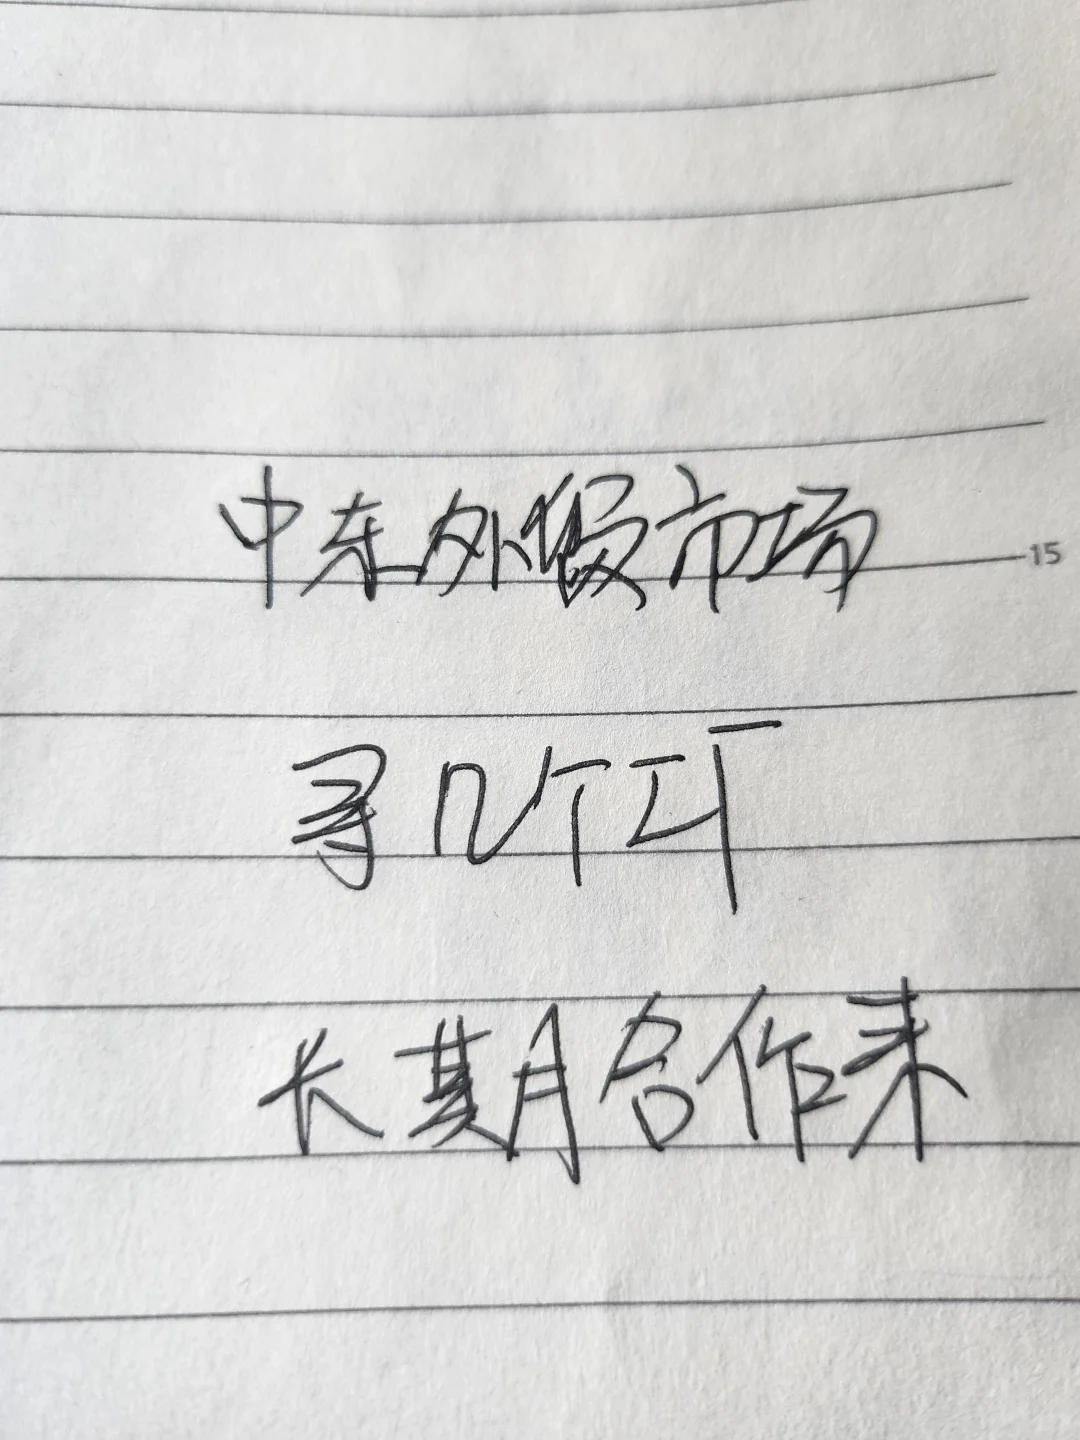 15
中东外假市场
寻几个工厂
长期合作来